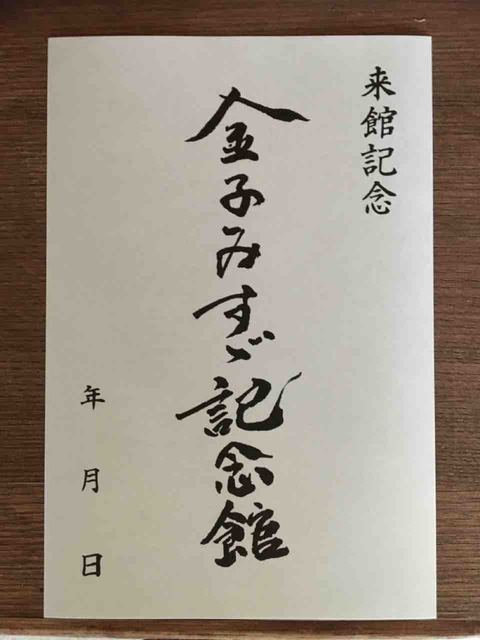 来館記念
金子みすゞ記念館
年 月 日